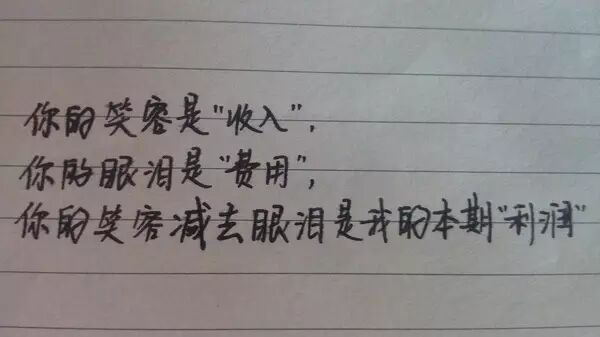 你的笑容是"收入",
你的眼泪是"费用",
你的笑容减去眼泪是我的本期"利润"